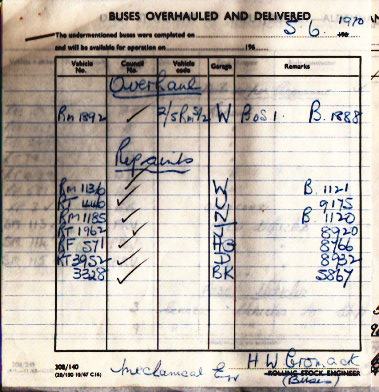 BUSES OVERHAULED AND DELIVERED
5 6 1970
The undermentioned buses were completed on 196
and will be available for operation on 196
Vehicle No. Council No. Vehicle code Garage Remarks
Overhaul
RM 1892 ✓ 2/5RM5/2 W BOS 1. B. 1888
Repaints
RM 1136 ✓ W B. 1121
RT ✓ 9175
RM 1185 ✓ N B 1120
RT 1962 ✓ 8920
RF 571 ✓ HG 8766
RT 3952 ✓ D 8932
3328 ✓ BK 5867
308/140
(20/100 10/67 C16)
Mechanical Eng
H W Cromack
ROLLING STOCK ENGINEER
(Buses)